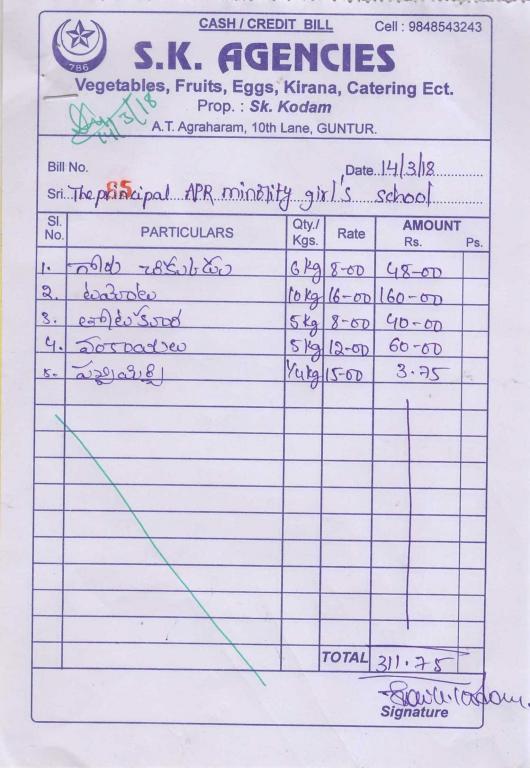 CASH / CREDIT BILL
Cell : 9848543243
786
S.K. AGENCIES
Vegetables, Fruits, Eggs, Kirana, Catering Ect.
Prop. : Sk. Kodam
14/3/18
A.T. Agraharam, 10th Lane, GUNTUR.
Bill No. 85
Date 14/3/18
Sri. The principal APR minority girl's school
Sl. No. PARTICULARS Qty./ Kgs. Rate AMOUNT Rs. Ps.
1. 6kg 8-00 48-00
2. టమోటాలు 10kg 16-00 160-00
3. 5kg 8-00 40-00
4. వంకాయలు 5kg 12-00 60-00
5. పచ్చిమిర్చి 1/4kg 15-00 3.75
TOTAL 311.75
Signature